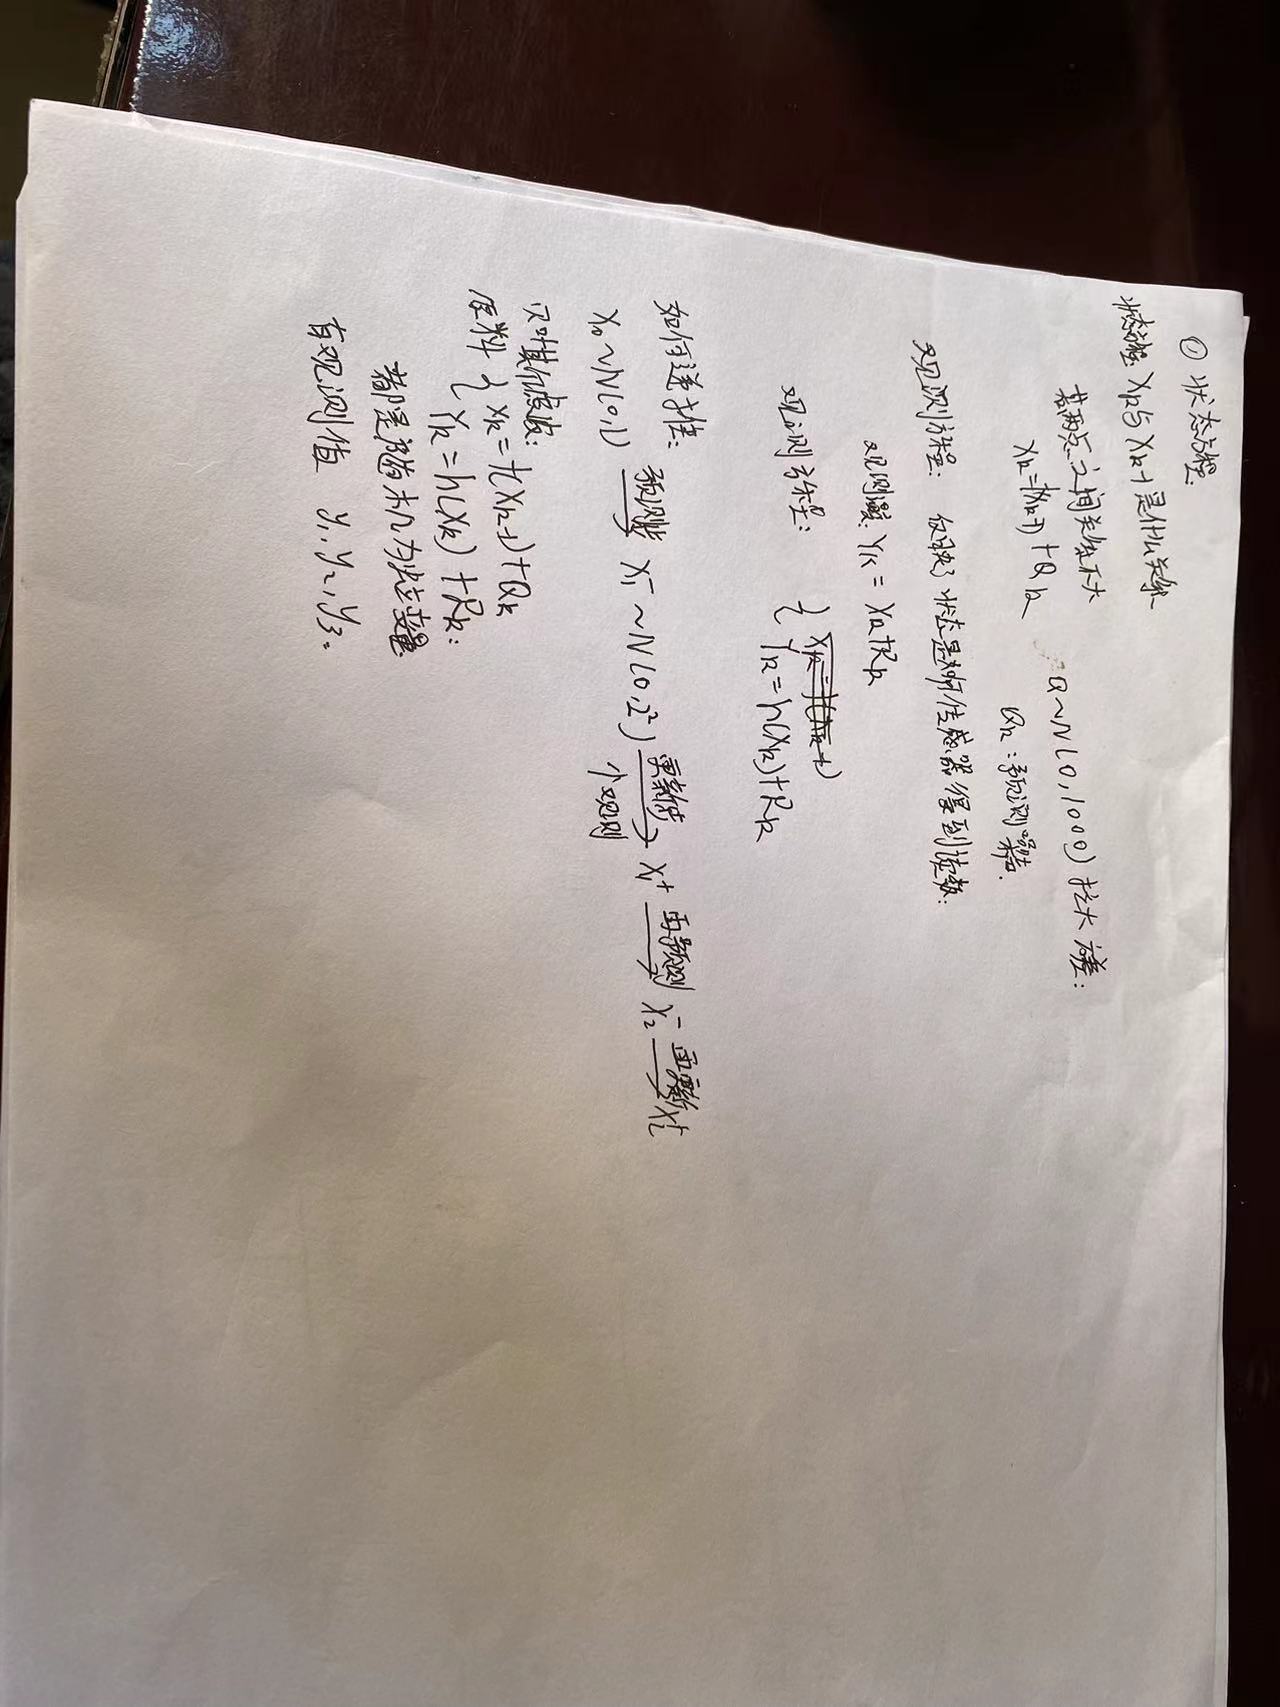 ① 状态方程
状态方程: Xk与Xk-1是什么关系
若两点之间关系不大
Xk=f(Xk-1)+Qk
Q~N(0,1000) 拉大方差:
Qk:预测噪声.
观测方程: 反映了状态是如何传感器得到读数:
观测温度: Yk = Xk+Rk
观测方程: { Xk=f(Xk-1)
Yk=h(Xk)+Rk
如何递推:
X0~N(0,1) 预测步 X1⁻~N(0,2²) 更新步 个观测 X1⁺ 再预测 X2⁻ 再更新 X2⁺
贝叶斯滤波:
原料 { Xk=f(Xk-1)+Qk
Yk=h(Xk)+Rk:
都是随机为独立变量
有观测值 y1,y2,y3.